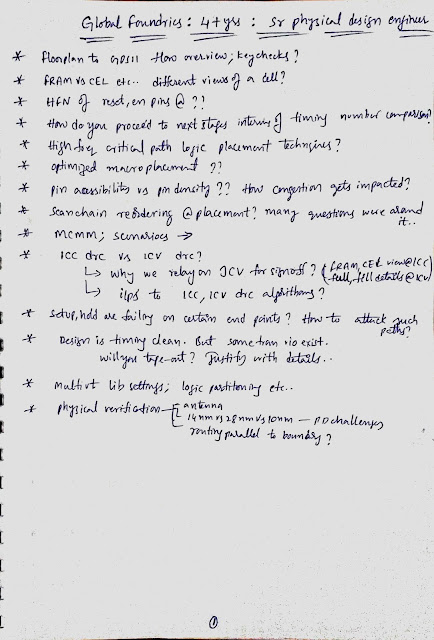 Global Foundries : 4+yrs : Sr physical design engineer
* floorplan to GDSII flow overview; keychecks?
* FRAM vs CEL etc.. different views of a cell?
* HFN of reset, en pins @ ??
* How do you proceed to next stages interms of timing number comparison?
* High freq critical path logic placement techniques?
* optimized macroplacement ??
* pin accessibility vs pin density ?? How congestion gets impacted?
* Scanchain reordering @ placement? many questions were around it..
* MCMM; scenarios →
* ICC drc vs ICV drc?
↳ why we relay on ICV for signoff? (FRAM, CEL view @ICC)
full, fill details @ICV
↳ i/ps to ICC, ICV drc algorithms?
* Setup, hold are failing on certain end points? How to attack such paths?
* Design is timing clean. But some tran vio exist.
will you tape-out? Justify with details..
* multi vt lib settings; logic partitioning etc..
* physical verification
antenna
14nm vs 28nm vs 10nm — PD challenges
routing parallel to boundry?
1